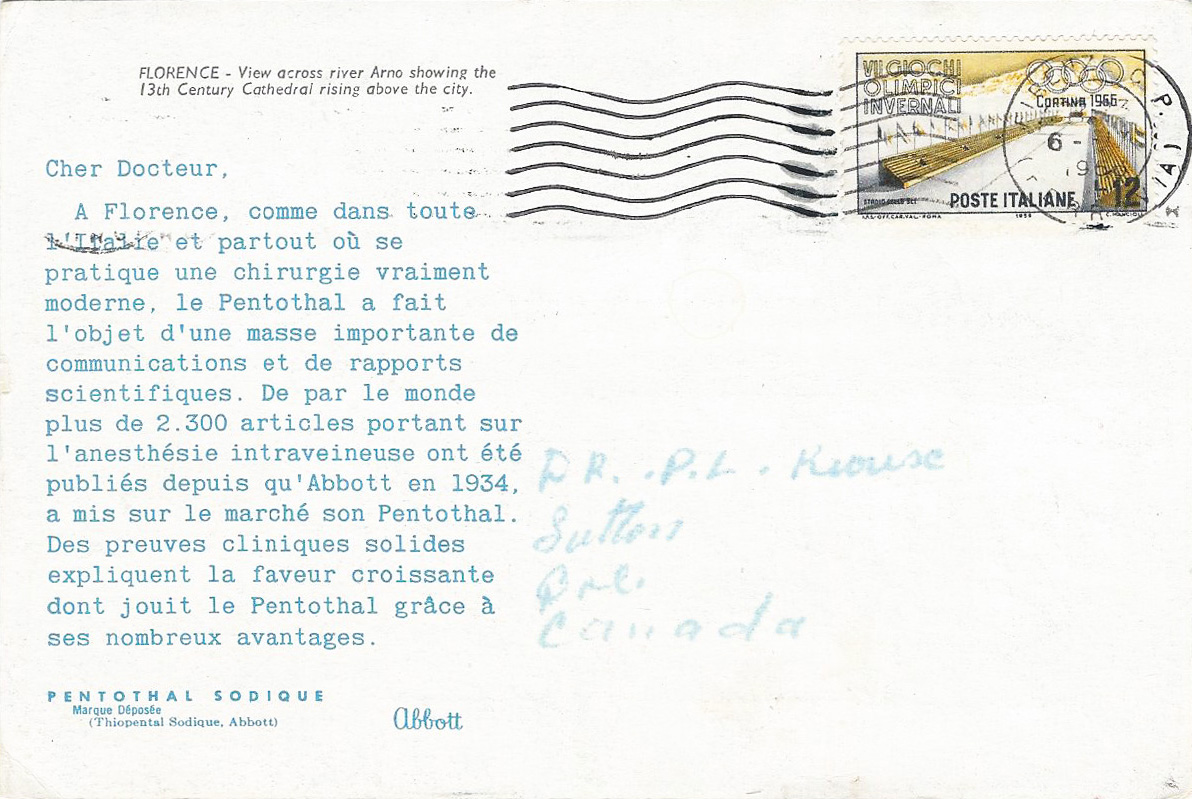 FLORENCE - View across river Arno showing the
13th Century Cathedral rising above the city.
VII GIOCHI
OLIMPICI
INVERNALI
CORTINA 1956
STADIO DELLO SCI
POSTE ITALIANE 12
I.P.S.-OFF.CAR.VAL.-ROMA 1956 C. MANCIOLI
6 -
19
Cher Docteur,
A Florence, comme dans toute
l'Italie et partout où se
pratique une chirurgie vraiment
moderne, le Pentothal a fait
l'objet d'une masse importante de
communications et de rapports
scientifiques. De par le monde
plus de 2.300 articles portant sur
l'anesthésie intraveineuse ont été
publiés depuis qu'Abbott en 1934,
a mis sur le marché son Pentothal.
Des preuves cliniques solides
expliquent la faveur croissante
dont jouit le Pentothal grâce à
ses nombreux avantages.
PENTOTHAL SODIQUE
Marque Déposée
(Thiopental Sodique, Abbott)
Abbott
DR. P.L.
Sutton
Canada